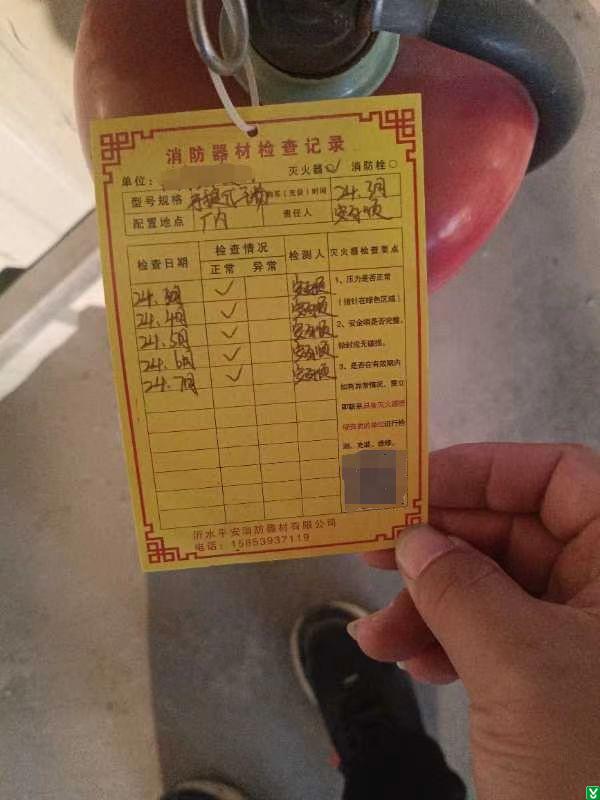 消防器材检查记录
灭火器✓ 消防栓○
单位：
型号规格 购买(充装)时间 24.3月
配置地点 厂内 责任人
检查日期 检查情况 检测人 灭火器检查要点
正常 异常
24.3月 ✓
24.4月 ✓
24.5月 ✓
24.6月 ✓
24.7月 ✓
1、压力是否正常
(指针在绿色区域)
2、安全销是否完整，
铅封应无破损。
3、是否在有效期内
如有异常情况，要立
即联系具有灭火器维
修资质的单位进行检
测、充装、维修。
沂水平安消防器材有限公司
电话：15853937119